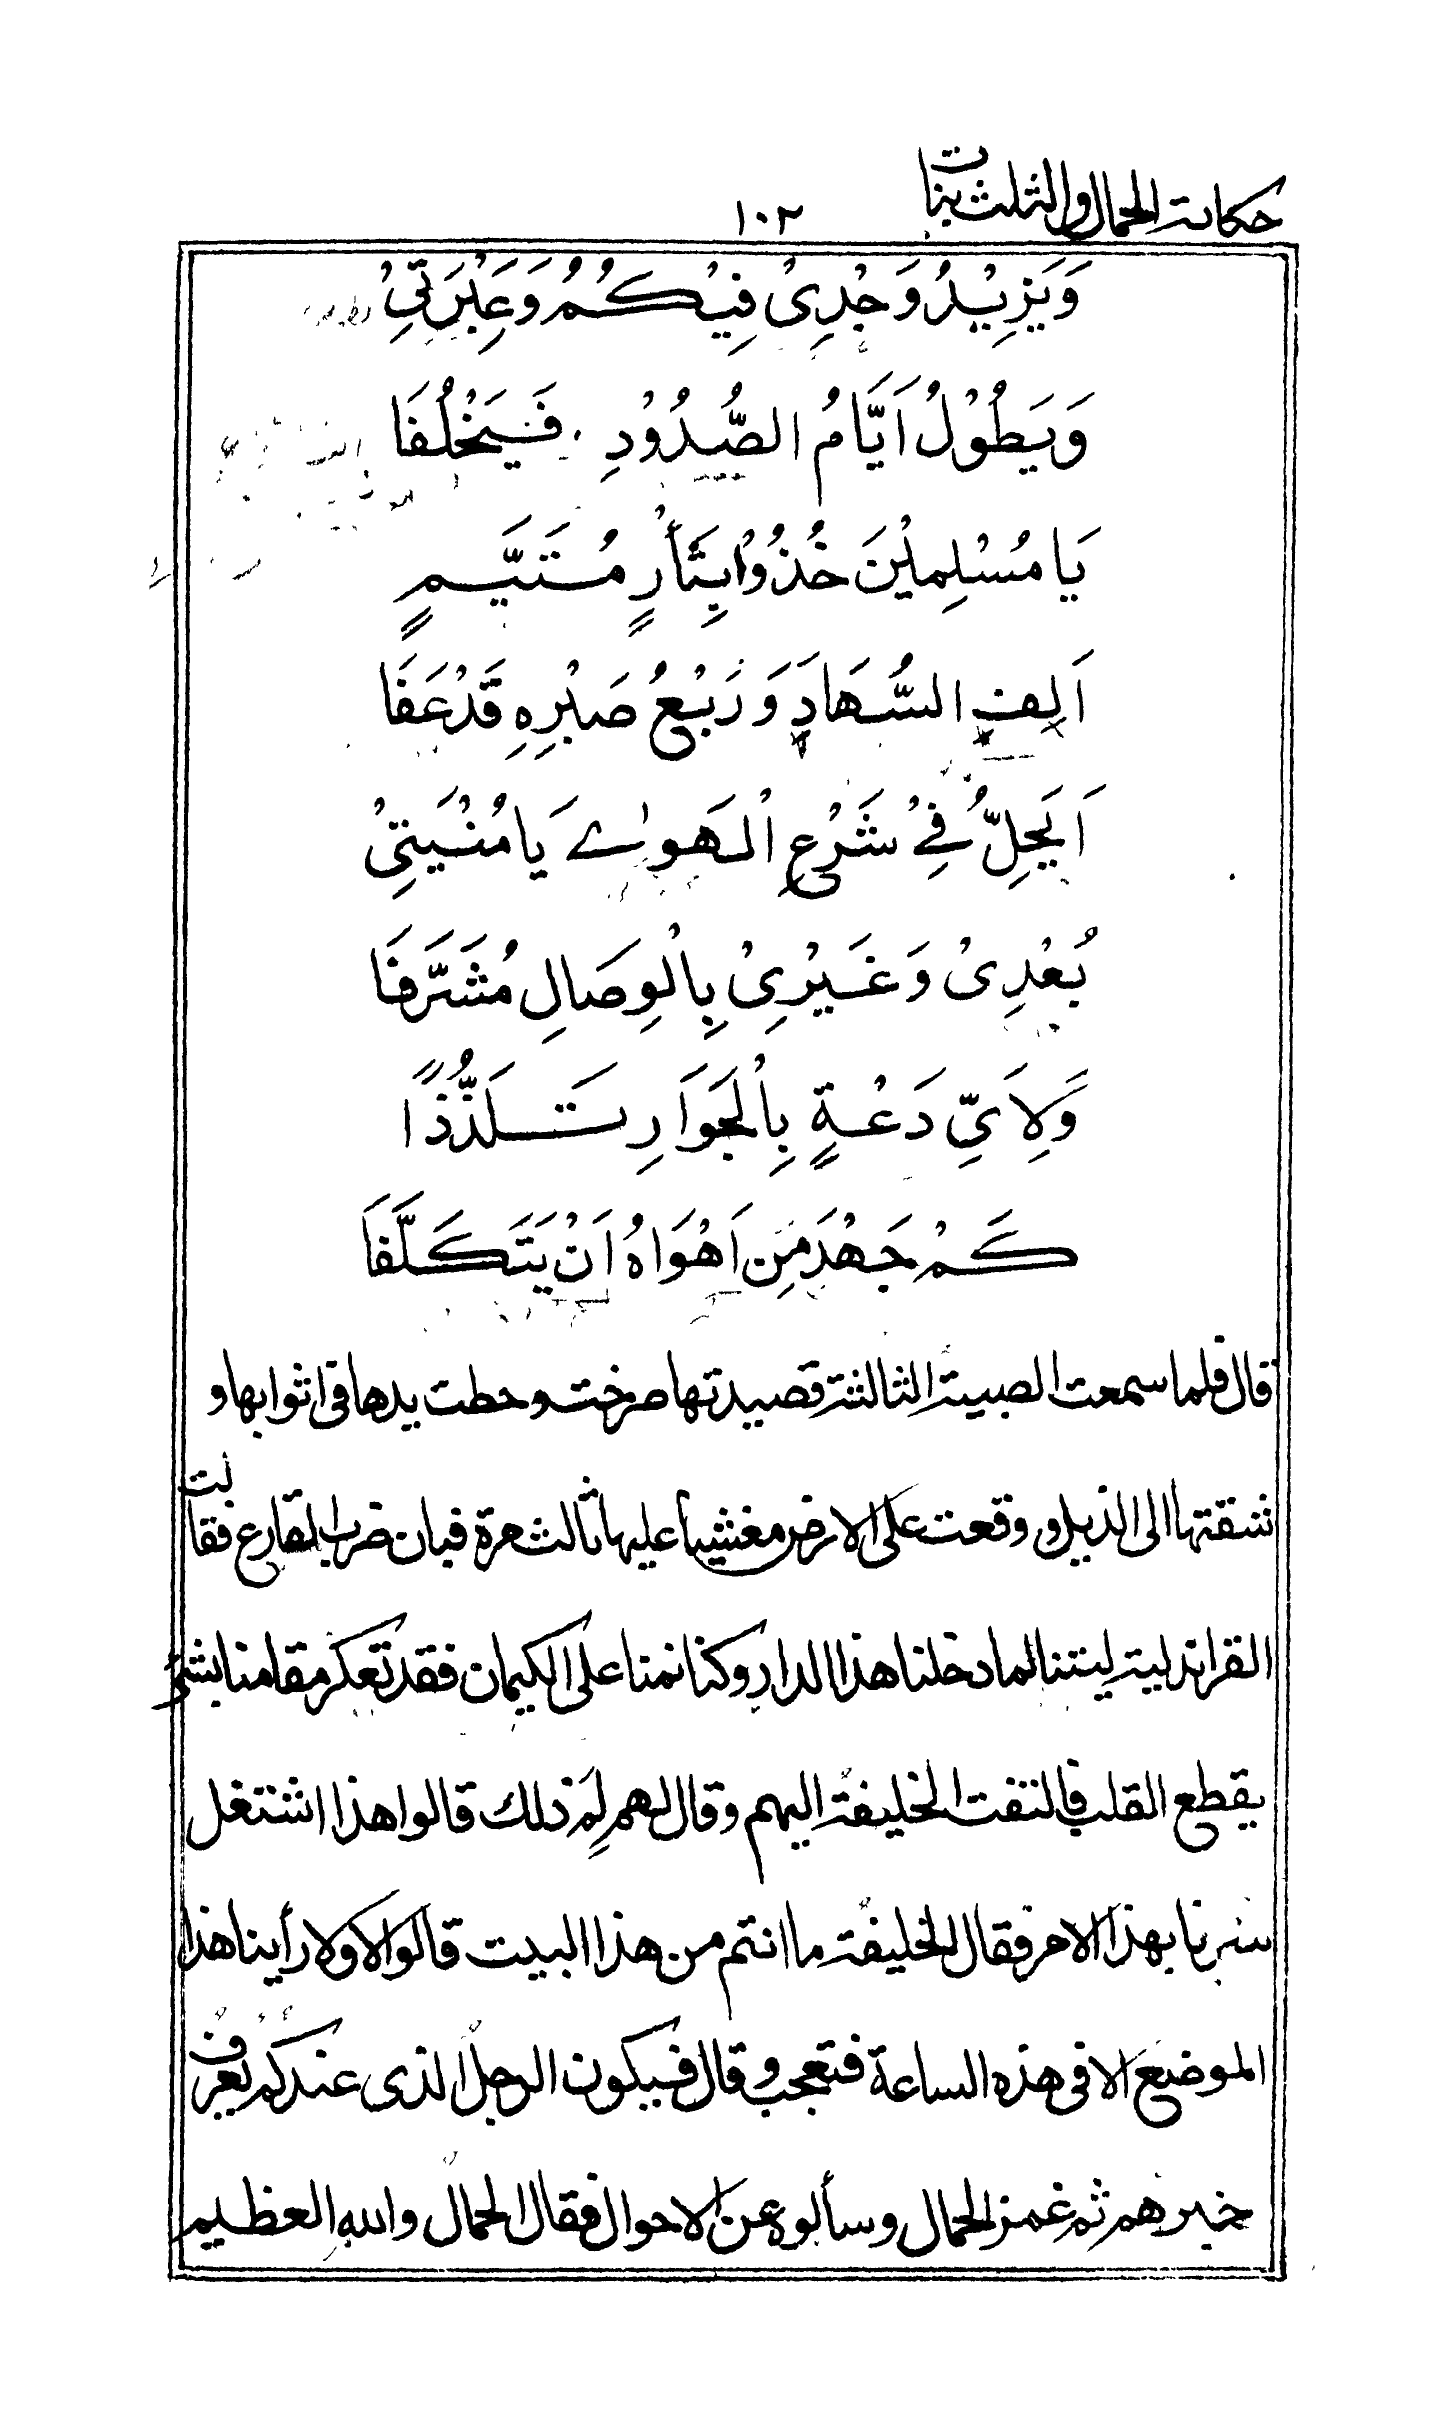 حكاية الحمال والثلث بنات
١٠٢
وَيَزِيْدُ وَجْدِىْ فِيْكُمُ وَعِبْرَتِىْ
وَيَطُوْلُ اَيَّامُ الصُّدُوْدِ فَيَخْلُفَا
يَا مُسْلِمِيْنَ خُذُوْا بِثَأْرٍ مُتَيَّمٍ
اَلِفِ السُّهَادِ وَرَبْعُ صَبْرِهِ قَدْ عَفَا
اَيَحِلُّ فِىْ شَرْعِ الْهَوٰے يَا مُنْيَتِىْ
بُعْدِىْ وَغَيْرِىْ بِالْوِصَالِ مُشَرَّفَا
وَلِاَىِّ دَعْةٍ بِالْجَوَارِ تَلَذُّذًا
كَمْ جَهْدَ مَنْ اَهْوَاهُ اَنْ يَتَكَلَّفَا
قال فلما سمعت الصبية الثالثة قصيدتها صرخت وحطت يدها فى اثوابها و
شقتها الى الذيل و وقعت على الارض مغشيا عليها ثالث مرة فبان ضرب المقارع فقالت
القرانذلية ليتنا لما دخلنا هذا الدار وكنا نمنا على الكيمان فقد تعكر مقامنا بشئ
يقطع القلب فالتفت الخليفة اليهم وقال لهم لِمَ ذلك قالوا هذا اشتغل
سرنا بهذا الامر فقال الخليفة ما انتم من هذا البيت قالوا لا ولا رأينا هذا
الموضع الا فى هذه الساعة فتعجب وقال فيكون الرجل الذى عندكم يعرف
خبرهم ثم غمز الحمال وسألوه عن الاحوال فقال الحمال والله العظيم